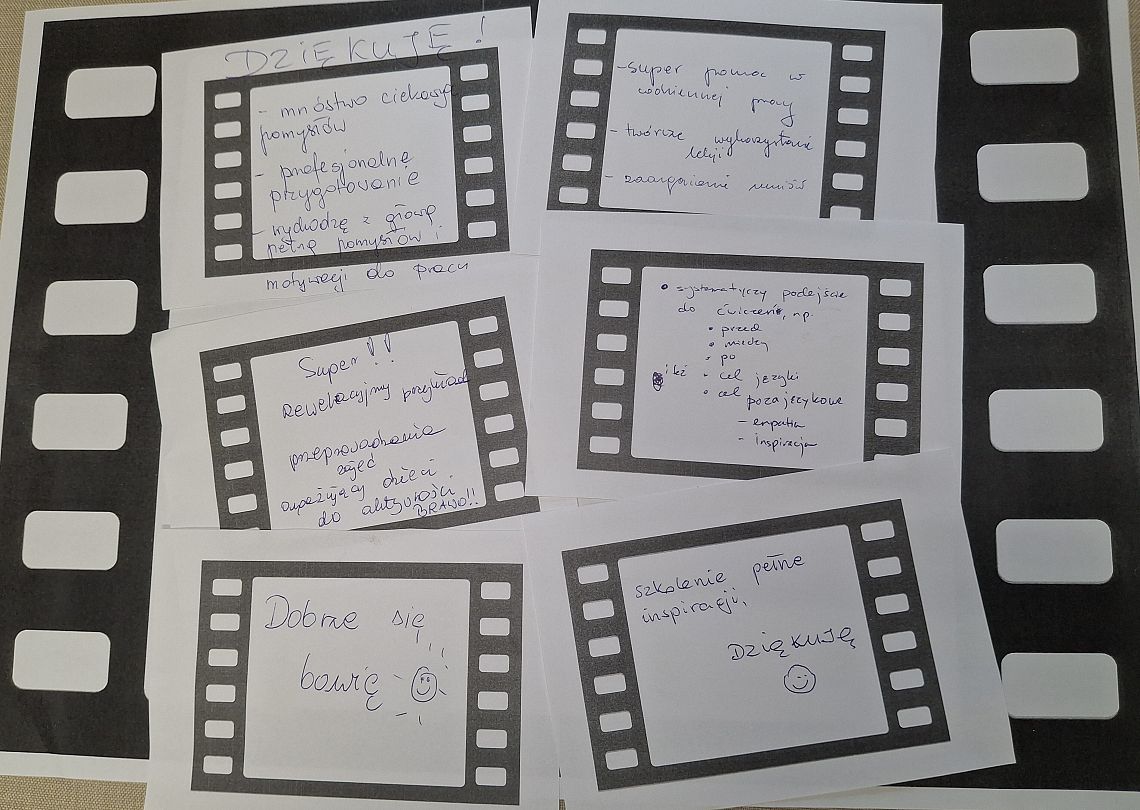 DZIĘKUJĘ!
- mnóstwo ciekawych
pomysłów
- profesjonalne
przygotowanie
- wychodzę z głową
pełną pomysłów i
motywacji do pracy
- super pomoc w
codziennej pracy
- twórcze wykorzystanie
lekcji
-
Super!!
rewelacyjny przykład
przeprowadzania
zajęć
angażujący dzieci
do aktywności
BRAWO!!
• systematyczny podejście
do ćwiczenia, np.
• przed
• między
• po
• cel języki
• cel pozajęzykowe
- empatia
- inspiracja
Dobrze się
bawię
szkolenie pełne
inspiracji.
DZIĘKUJĘ